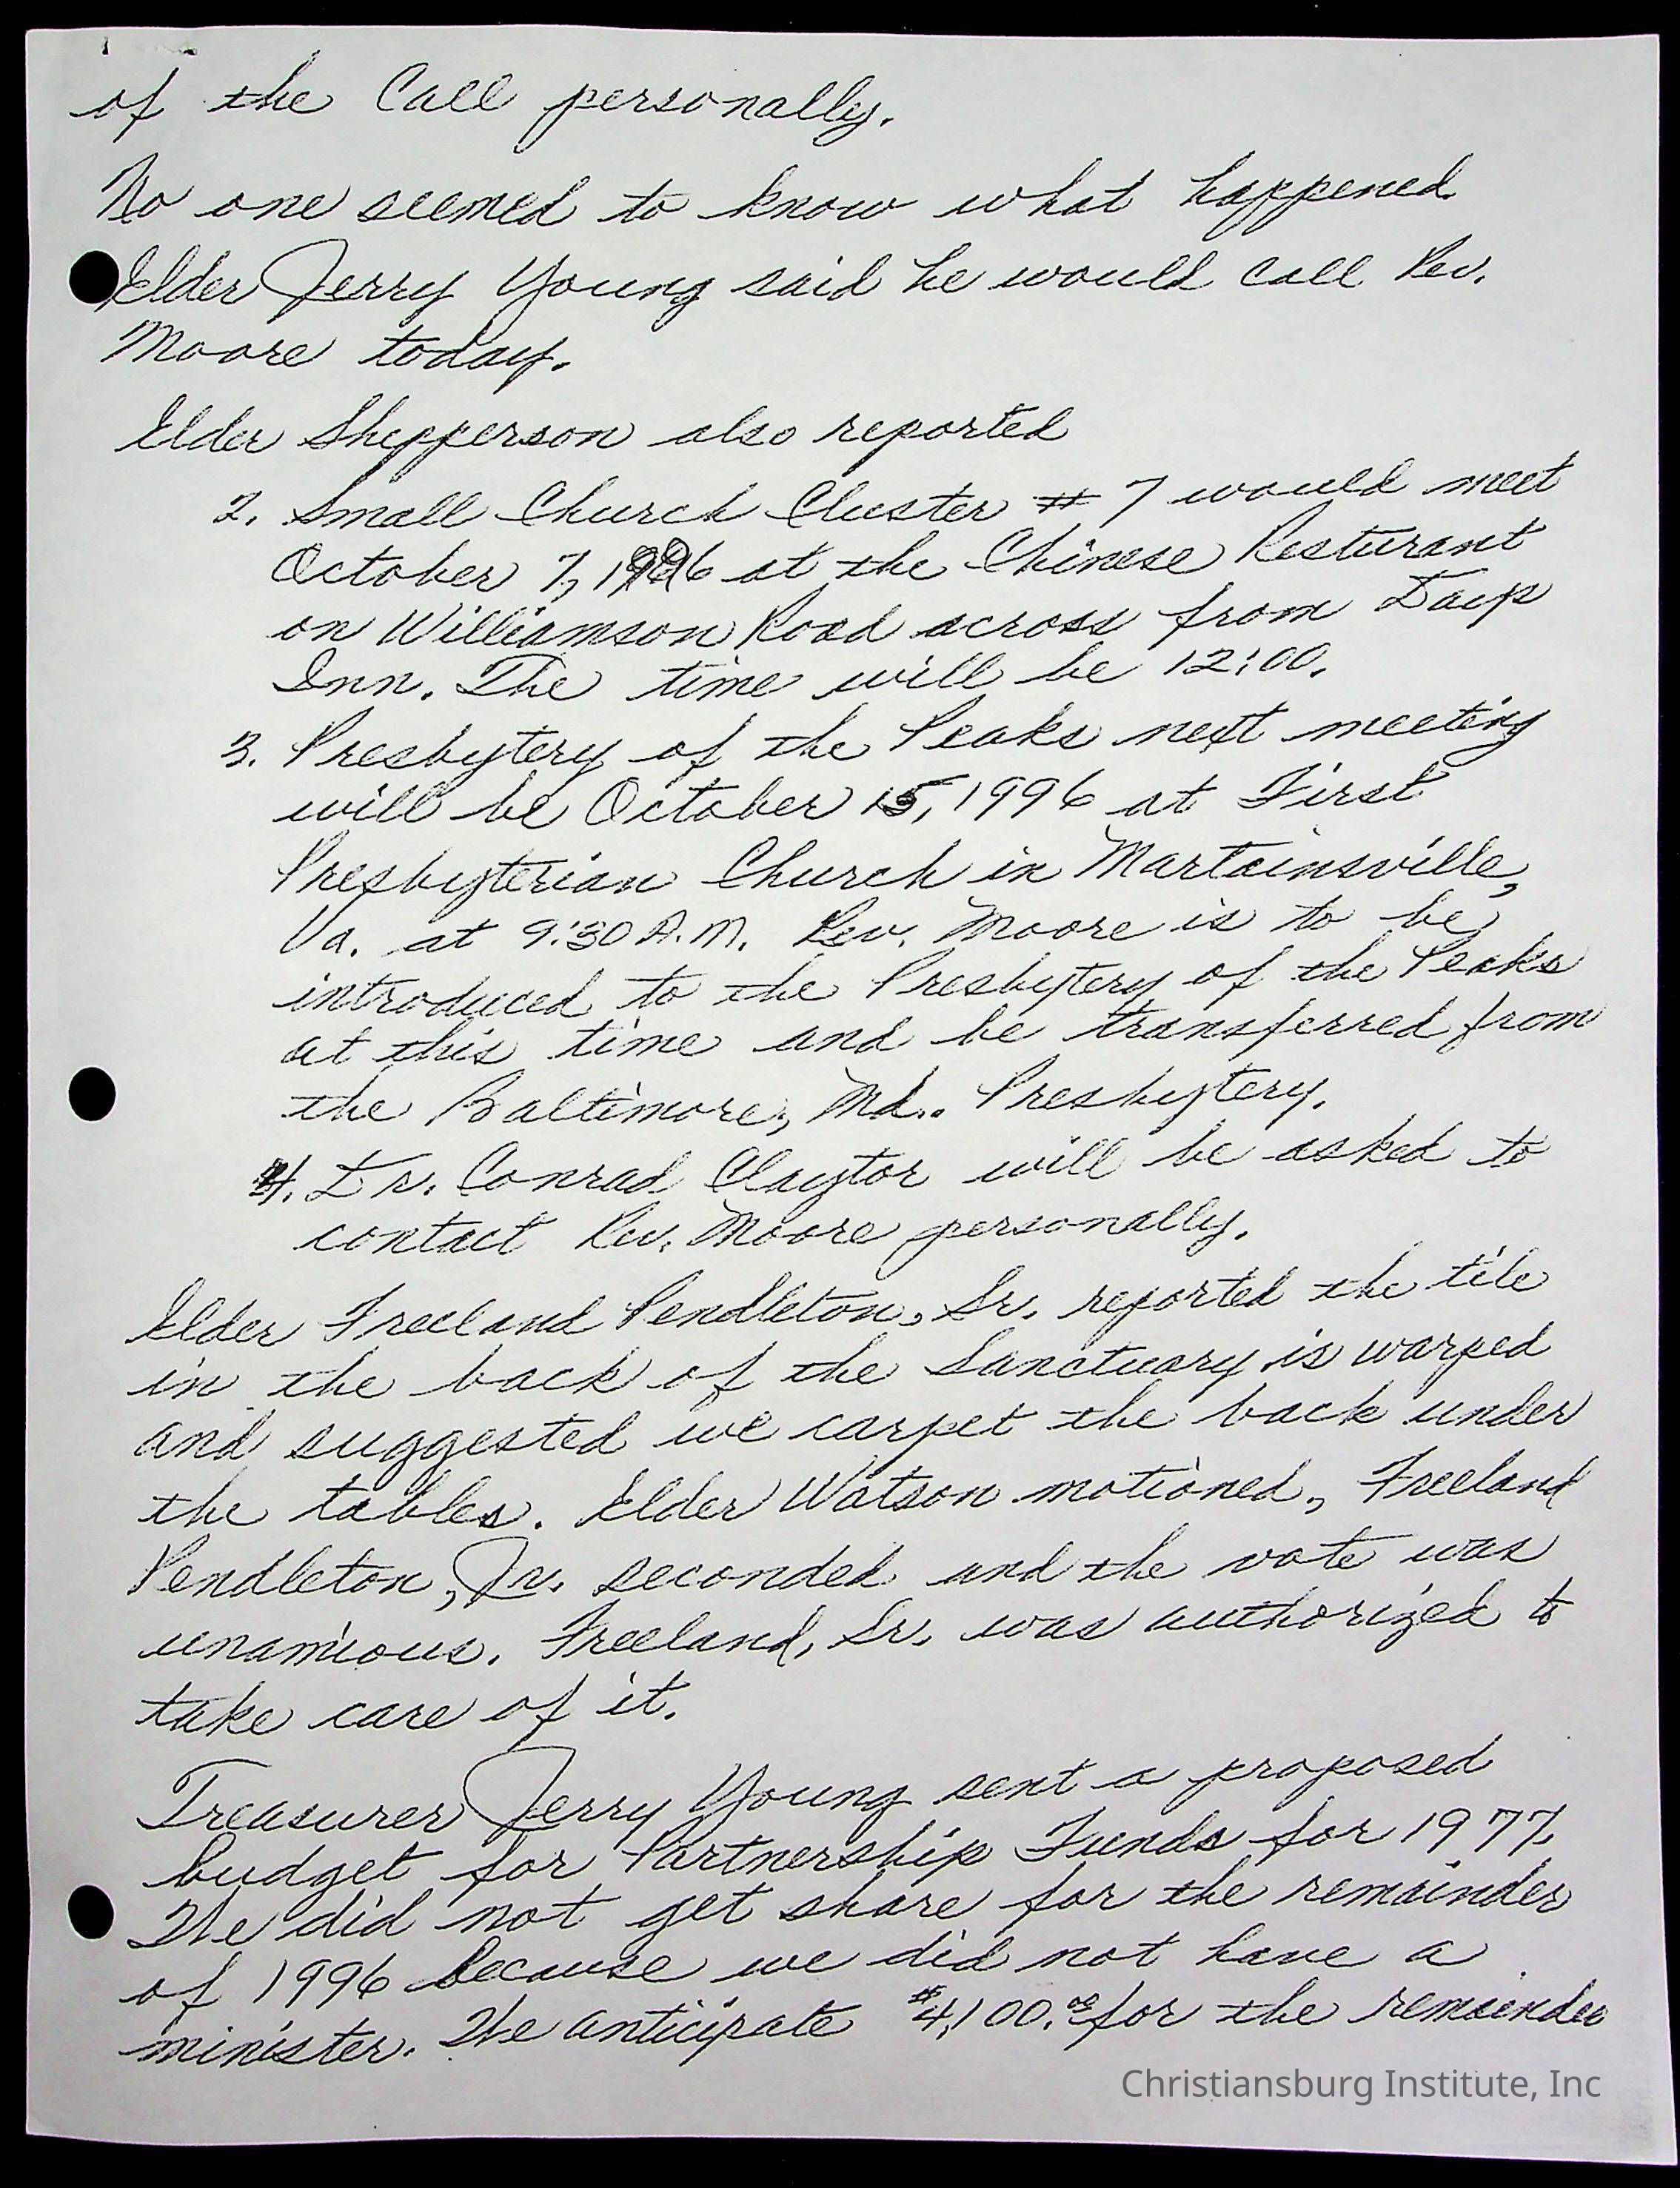 of the Call personally.
No one seemed to know what happened.
Elder Jerry Young said he would call Rev.
Moore today.
Elder Shepperson also reported
2. Small Church Cluster # 7 would meet
October 7, 1996 at the Chinese Resturant
on Williamson Road across from Days
Inn. The time will be 12:00.
3. Presbytery of the Peaks next meeting
will be October 15, 1996 at First
Presbyterian Church in Martainsville,
Va. at 9:30 A.M. Rev. Moore is to be
introduced to the Presbytery of the Peaks
at this time and be transferred from
the Baltimore, Md.. Presbytery.
4. Dr. Conrad Claytor will be asked to
contact Rev. Moore personally.
Elder Freeland Pendleton, Sr. reported the tile
in the back of the Sanctuary is warped
and suggested we carpet the back under
the tables. Elder Watson motioned, Freeland
Pendleton, Jr. seconded and the vote was
unamious. Freeland, Sr. was authorized to
take care of it.
Treasurer Jerry Young sent a proposed
budget for Partnership Funds for 1977.
We did not get share for the remainder
of 1996 because we did not have a
minister. We anticipate $4,100.00 for the remainder
Christiansburg Institute, Inc